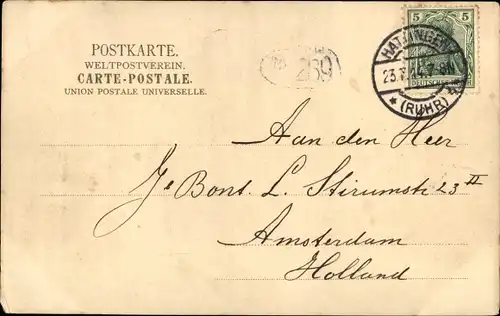 POSTKARTE.
WELTPOSTVEREIN.
CARTE-POSTALE.
UNION POSTALE UNIVERSELLE.
269
5 5
HATTINGEN
23.
* (RUHR)
Aan den Heer
Je Bont. L. Stirumstr 23 II
Amsterdam
Holland